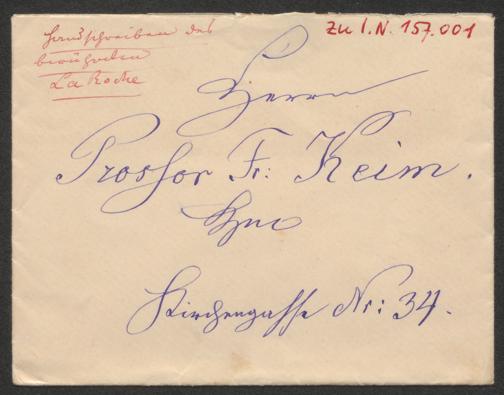 Handschreiben des
berühmten
La Roche
Zu I.N. 157.001
Herrn
Prossor Fr: Keim.
Kirchengasse Nr: 34.